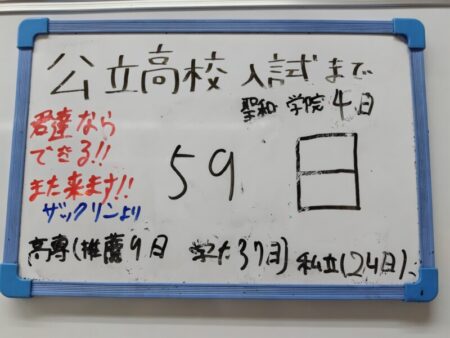 公立高校入試まで
聖和学院4日
君達なら
できる!!
また来ます!!
ザックリンより
59日
高専(推薦9日 学力37日) 私立(24日)